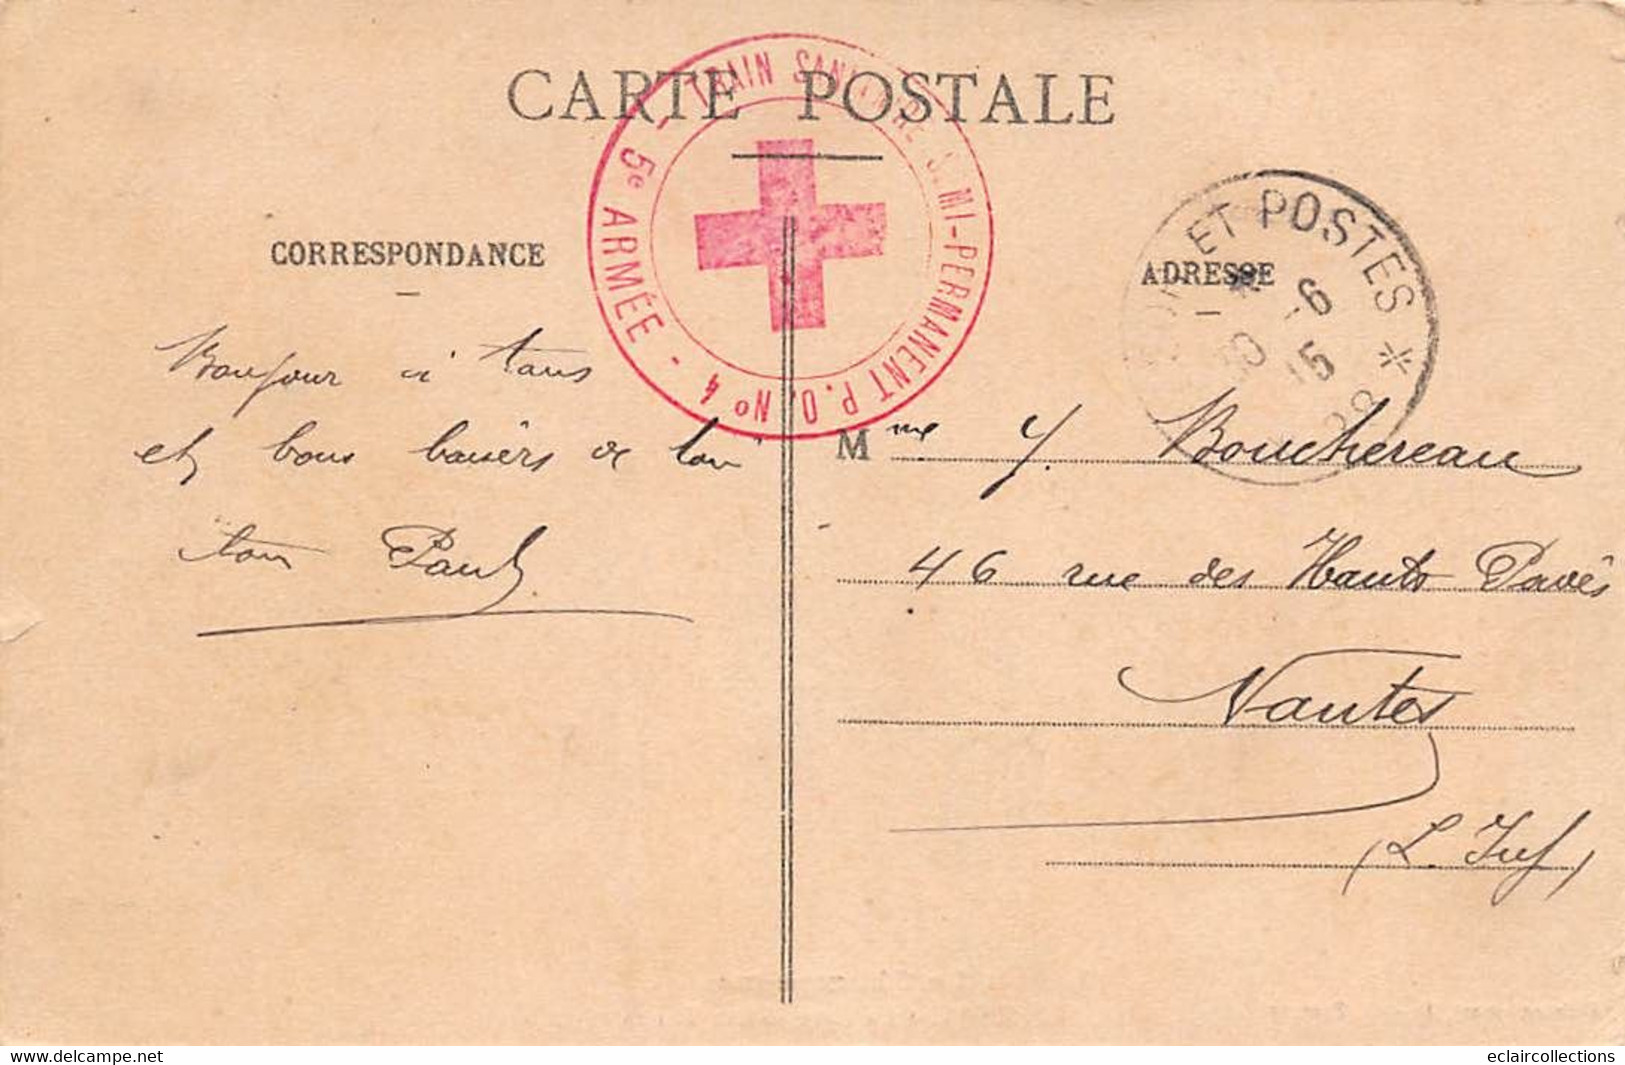 CARTE POSTALE
TRAIN SANITAIRE SEMI-PERMANENT P.O. N° 4
- 5e ARMÉE -
ET POSTES *
-6
15
CORRESPONDANCE
ADRESSE
Bonjour à tous
et bons baisers de ton
ton Paul
Mme Y. Bouchereau
46 rue des Hauts Pavés
Nantes
(L. Inf)
www.delcampe.net
eclaircollections